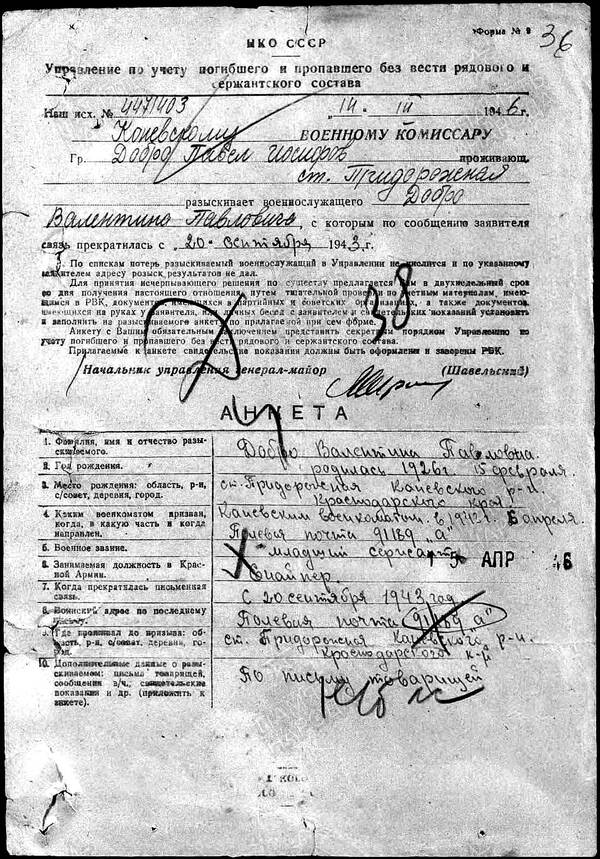 Форма № 8
36
НКО СССР
Управление по учету погибшего и пропавшего без вести рядового и
сержантского состава
Наш исх. № 447403 14. III 1946г.
Каневскому ВОЕННОМУ КОМИССАРУ
Гр. Добро Павел Иосифов проживающ.
ст. Придорожная
разыскивает военнослужащего Добро
Валентина Павловича, с которым по сообщению заявителя
связь прекратилась с „20“ сентября 1943г.
По спискам потерь разыскиваемый военнослужащий в Управлении не числится и по указанному
заявителем адресу розыск результатов не дал.
Для принятия исчерпывающего решения по существу предлагается Вам в двухнедельный срок
со дня получения настоящего отношения, путем тщательной проверки по учетным материалам, имею-
щимся в РВК, документов, имеющихся в партийных и советских организациях, а также документов,
имеющихся на руках у заявителя, личных бесед с заявителем и свидетельских показаний установить
и заполнить на разыскиваемого анкету по прилагаемой при сем форме.
Анкету с Вашим обязательным заключением представить секретным порядком Управлению по
учету погибшего и пропавшего без вести рядового и сержантского состава.
Прилагаемые к анкете свидетельские показания должны быть оформлены и заверены РВК.
38
Начальник управления генерал-майор (Шавельский)
АНКЕТА
1. Фамилия, имя и отчество разы-
скиваемого. Добро Валентина Павловна.
2. Год рождения. родилась 1926г. 15 февраля
3. Место рождения: область, р-н, ст. Придорожная Каневского р-н
с/совет, деревня, город. Краснодарского края
4. Каким военкоматом призван, Каневским военкоматом. в 1942 г. апреля.
когда, в какую часть и когда
направлен. Полевая почта 91189 „а“
5. Военное звание. младший сержант
15 АПР 46
6. Занимаемая должность в Крас-
ной Армии. Снайпер.
7. Когда прекратилась письменная
связь. С 20 сентября 1943 год
8. Воинский адрес по последнему
письму. Полевая почта 91189 „а“
9. Где проживал до призыва: об-
ласть, р-н, с/совет, деревня, го-
род. ст. Придорожная Каневского р-н.
Краснодарского к-р
10. Дополнительные данные о разы-
скиваемом: письма товарищей, По письму товарищей
сообщения в/ч, свидетельские
показания и др. (приложить к
анкете).